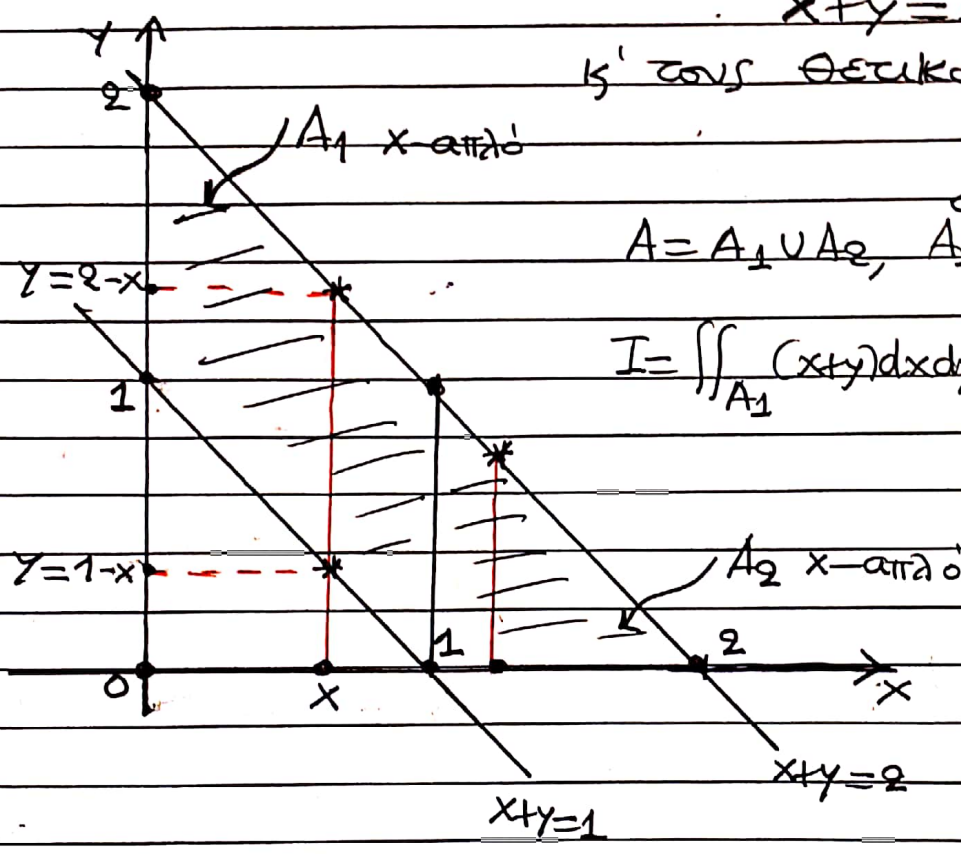 x+y=
κ' τους θετικο
Y
2
A₁ x-απλό
A = A₁ ∪ A₂, A₁
Y=2-x
I = ∬_A₁ (x+y)dxdy
1
Y=1-x
A₂ x-απλό
0
x
1
2
x
x+y=2
x+y=1